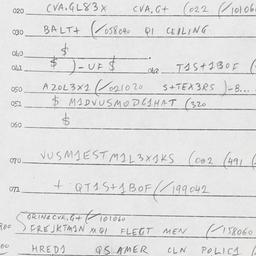 020 CVA.GL83X CVA.G+ (022 (/10106
030 BALT+ (/058040 QI CEILING
040 $
041 $ )-UF $ 042 T1S+1BOF (
050 AZOL3X1 (/021020 S+TEX3RS )-8...
051 $ M1DVUSMODG1HAT (320
060 $
070 VUSM1ESTM1L3X1KS (002 (491 (
071 + QT1S+1BOF (/199042
GRINACVA.G+ (/101060
FREJKTM1N MQI FLEGT MEN (/158060
HRED1 QS AMER CLN POLIC1 (